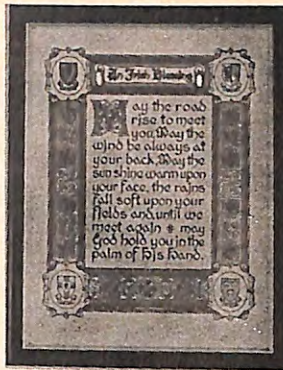 An Irish Blessing
May the road
rise to meet
you. May the
wind be always at
your back. May the
sun shine warm upon
your face, the rains
fall soft upon your
fields and, until we
meet again * may
God hold you in the
palm of His hand.